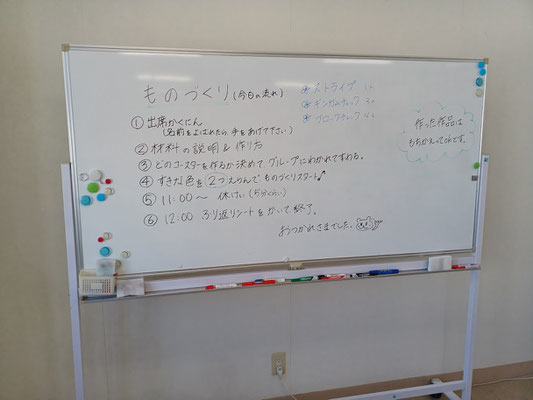 ものづくり(今日の流れ)
①出席かくにん
(名前をよばれたら手をあげて下さい)
②材料の説明&作り方
③どのコースターを作るか決めてグループにわかれてすわる。
④すきな色を2つえらんでものづくりスタート♪
⑤11:00～ 休けい(5分くらい)
⑥12:00 ふり返りシートをかいて終了。
おつかれさまでした。
ストライプ
ギンガムチェック
ブロックチェック
作った作品は
もちかえってOKです。